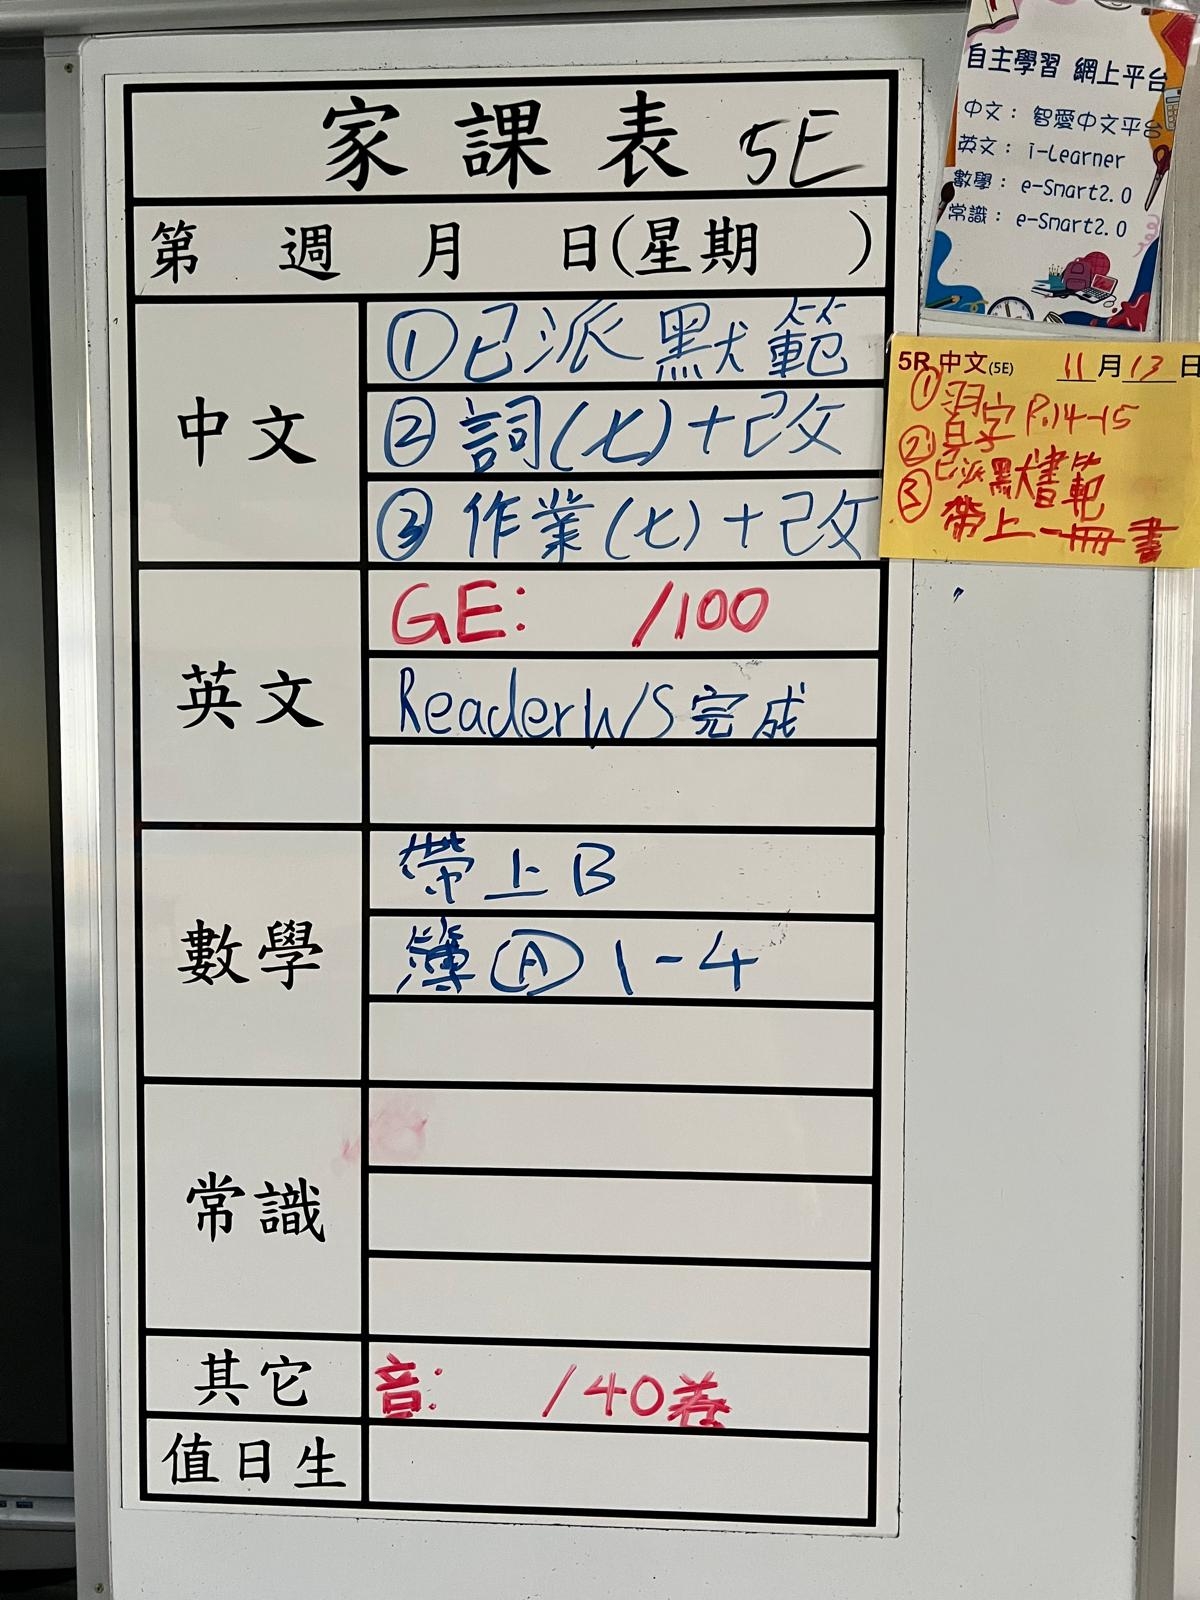 家課表 5E
第 週 月 日(星期 )
中文
①已派默範
②詞(七)+改
③作業(七)+改
英文
GE: /100
Reader W/S 完成
數學
帶上B
簿Ⓐ 1-4
常識
其它
音: /40卷
值日生
自主學習 網上平台
中文： 智愛中文平台
英文： i-Learner
數學： e-Smart2.0
常識： e-Smart2.0
5R 中文(5E) 11月13日
①習字 P.14-15
②
③已派默書範
帶上一冊書